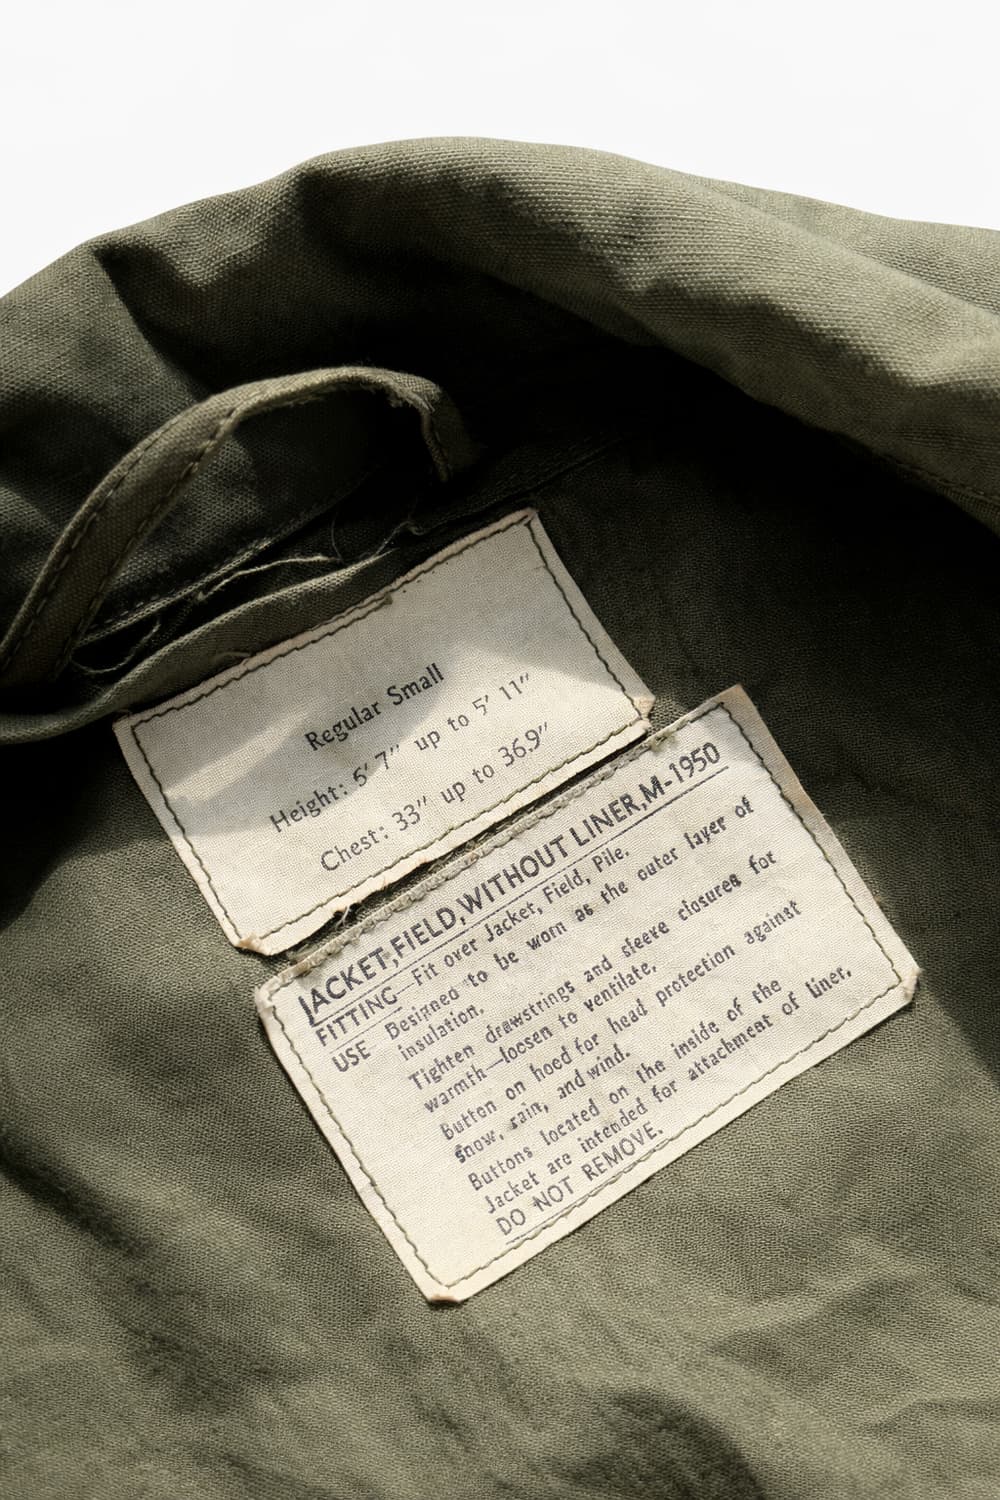 Regular Small
Height: 5' 7" up to 5' 11"
Chest: 33" up to 36.9"
JACKET,FIELD,WITHOUT LINER,M-1950
FITTING—Fit over Jacket, Field, Pile.
USE- Designed to be worn as the outer layer of
insulation.
Tighten drawstrings and sleeve closures for
warmth—loosen to ventilate.
Button on hood for head protection against
snow, rain, and wind.
Buttons located on the inside of the
Jacket are intended for attachment of liner.
DO NOT REMOVE.